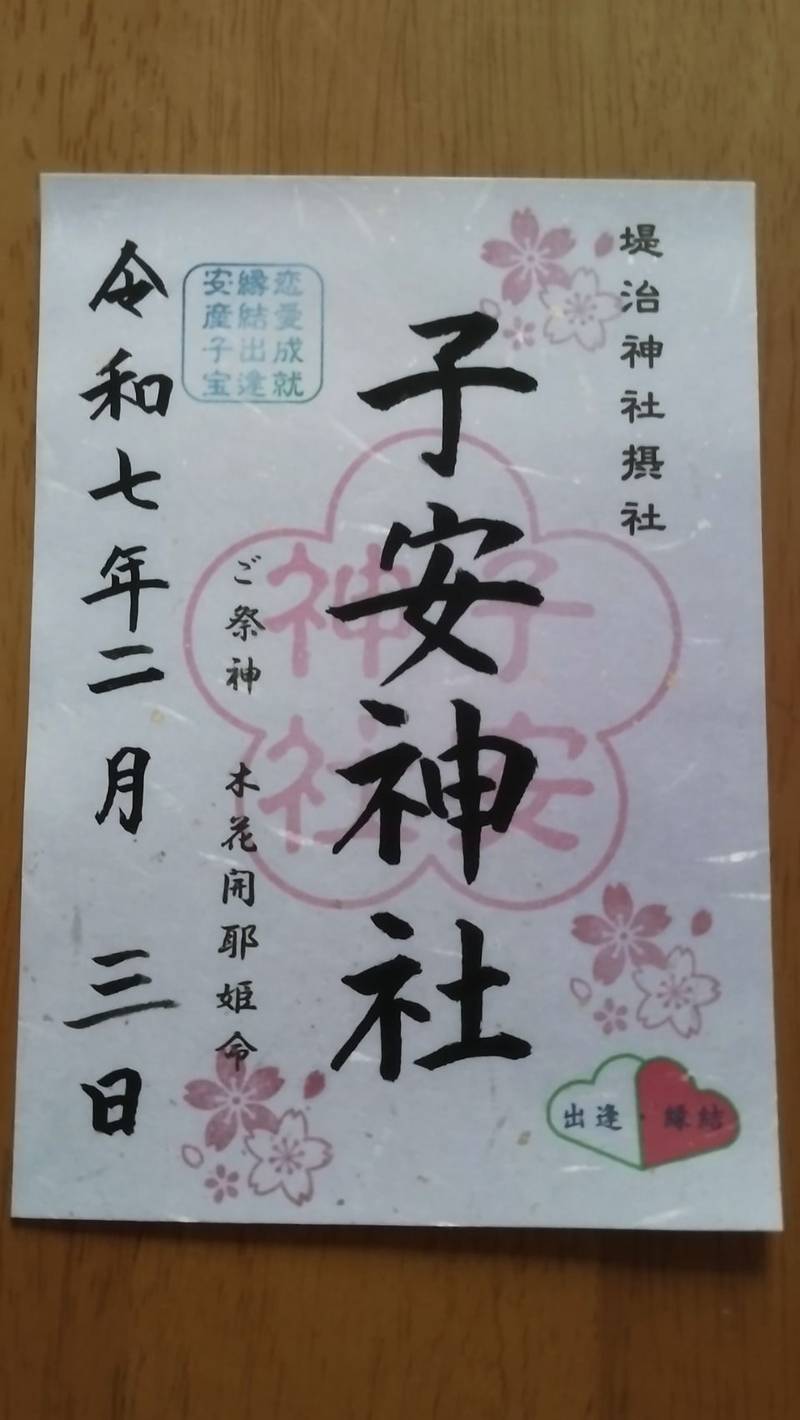 堤治神社摂社
子安神社
子安
神社
恋愛成就
縁結出逢
安産子宝
ご祭神 木花開耶姫命
令和七年二月 三日
出逢・縁結